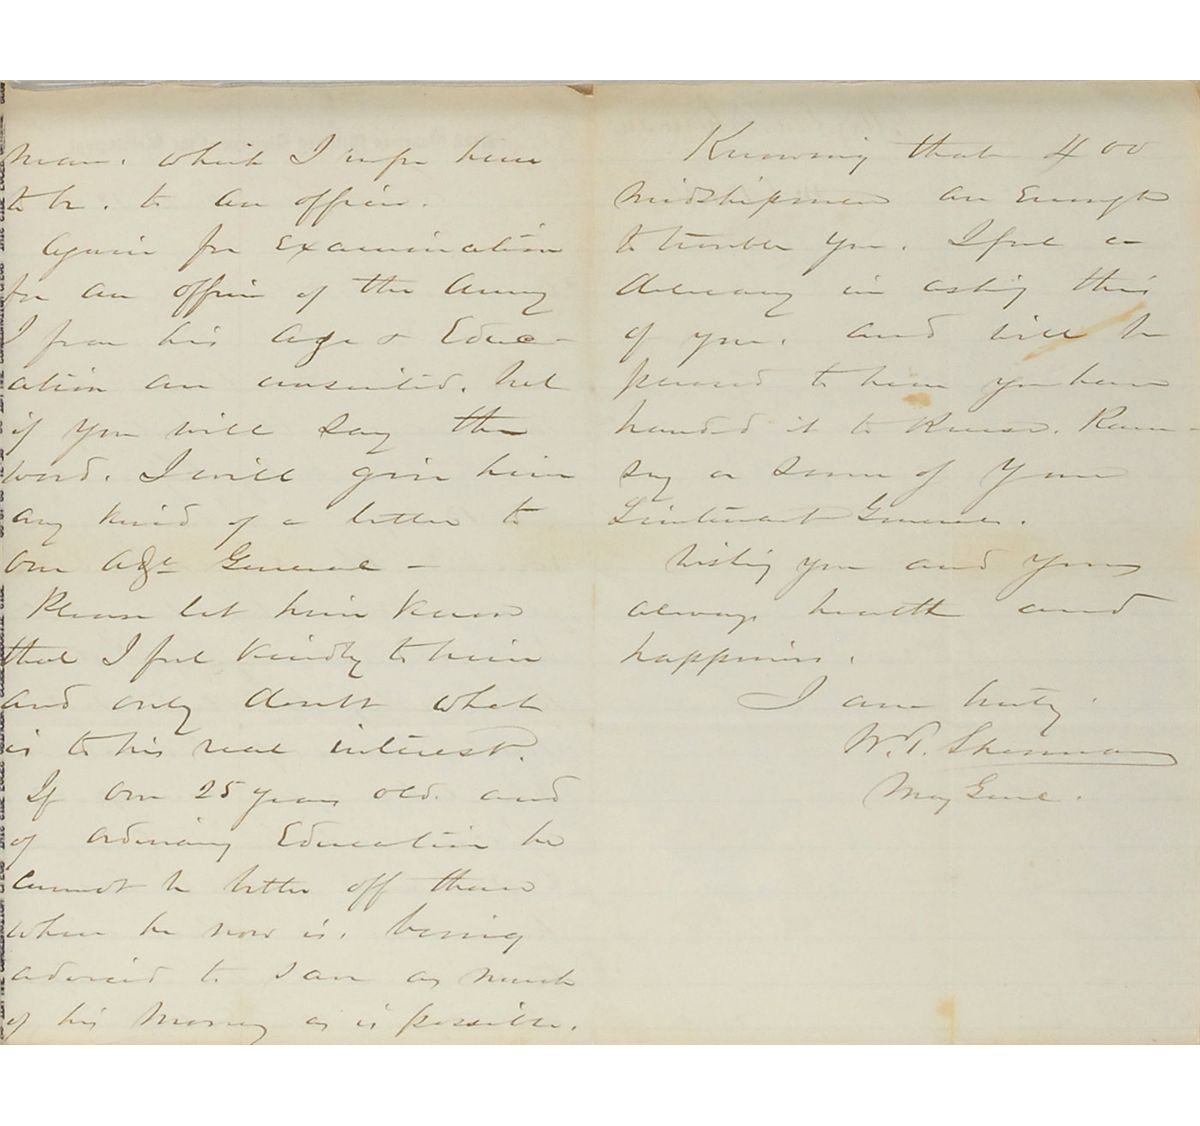 man. which I infer him
to be. to an officer.
Again for Examination
for an officer of the Army
I fear his age & Educ-
ation are unsuited. but
if you will say the
word. I will give him
any kind of a letter to
our Adjt General -
Please let him know
that I feel kindly to him
and only doubt what
is to his real interest.
If over 25 years old. and
of ordinary Education he
cannot be better off than
where he now is. being
advised to save as much
of his money as is possible.
Knowing that 400
midshipmen are Enough
to trouble you. I feel a
delicacy in asking this
of you. and will be
pleased to hear you have
handed it to Ram-
sey or some of your
Lieutenant Generals.
Wishing you and yours
always health and
happiness.
I am truly
W.T. Sherman
Maj Genl.